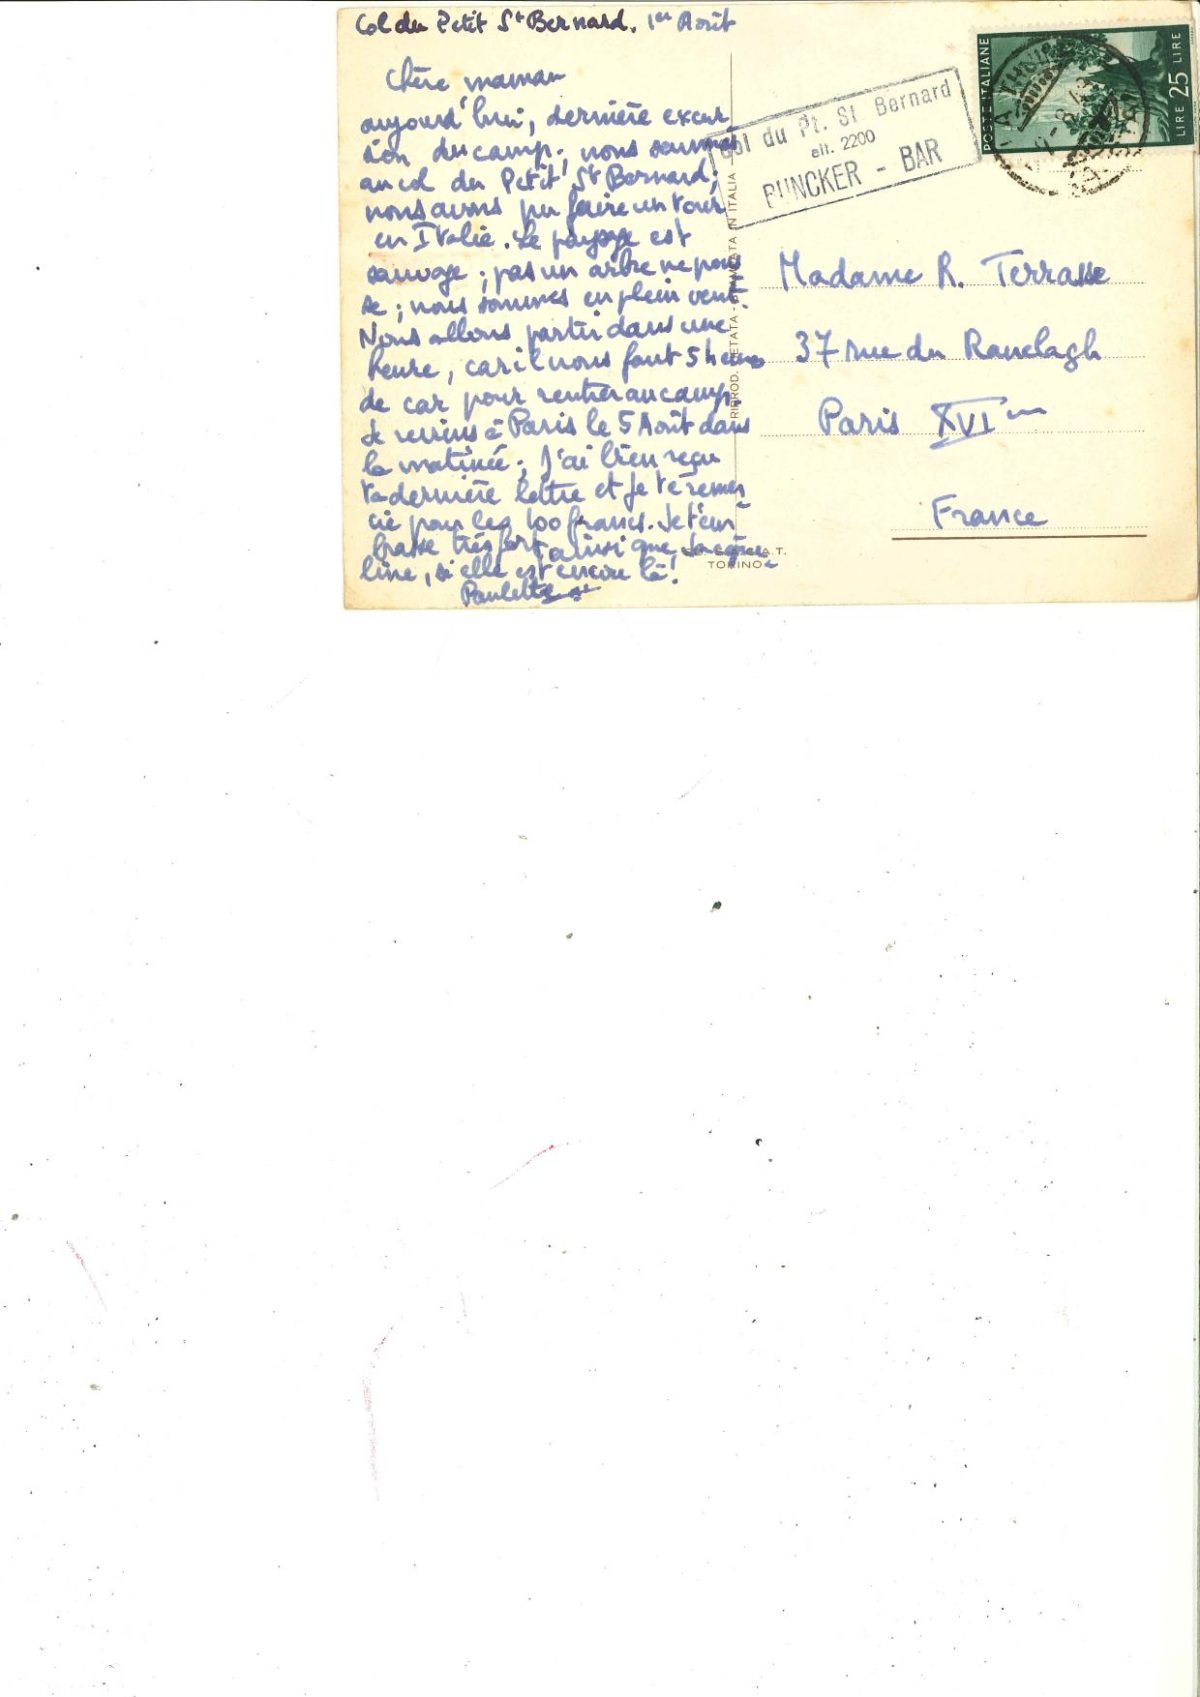 Col du Petit St Bernard. 1er Août
Chère maman
aujourd'hui, dernière excur-
sion du camp; nous sommes
au col du Petit St Bernard;
nous avons pu faire un tour
en Italie. Le paysage est
sauvage; pas un arbre ne pous
se; nous sommes en plein vent.
Nous allons partir dans une
heure, car il nous faut 5 heures
de car pour rentrer au camp.
Je reviens à Paris le 5 Août dans
la matinée. J'ai bien reçu
ta dernière lettre et je te remer-
cie pour les 100 francs. Je t'em
brasse très fort ainsi que Jacque-
line, si elle est encore là!
Paulette
Col du Pt. St Bernard
alt. 2200
BUNCKER - BAR
POSTE ITALIANE
LIRE 25 LIRE
RIPROD. VIETATA - STAMPATA IN ITALIA
TORINO
Madame R. Terrasse
37 rue du Ranelagh
Paris XVIme
France